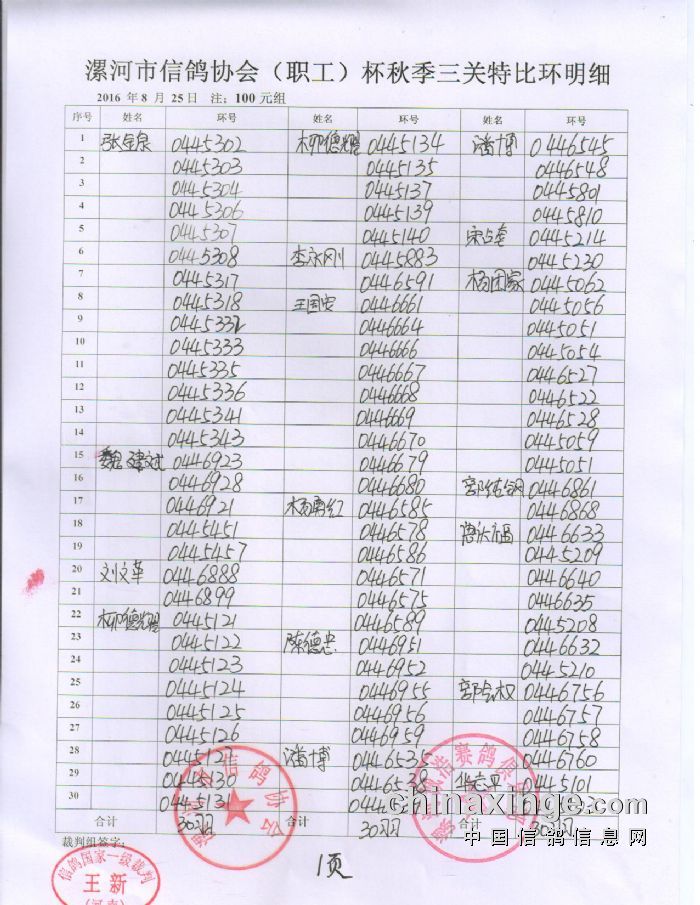 漯河市信鸽协会（职工）杯秋季三关特比环明细
2016 年 8 月 25 日 注：100 元组
序号 姓名 环号 姓名 环号 姓名 环号
1 张全泉 0445302 柳德耀 0445134 潘博 0446545
2 0445303 0445135 0446548
3 0445304 0445137 0445801
4 0445306 0445139 0445810
5 0445307 0445140 0445214
6 0445308 李永刚 0445883 0445230
7 0445317 0446591 杨团家 0445062
8 0445318 王国安 0446661 0445056
9 0445332 0446664 0445051
10 0445333 0446666 0445054
11 0445335 0446667 0446527
12 0445336 0446668 0446522
13 0445341 0446669 0446528
14 0445343 0446670 0445059
15 魏建斌 0446923 0446679 0445051
16 0446928 0446680 0446861
17 0446921 0446585 0446868
18 0445451 0446578 0446633
19 0445457 0446586 0445209
20 刘文革 0446888 0446571 0446640
21 0446899 0446575 0446635
22 柳德耀 0445121 0446589 0445208
23 0445122 陈德忠 0446951 0446632
24 0445123 0446952 0445210
25 0445124 0446955 郭会权 0446756
26 0445125 0446956 0446757
27 0445126 0446959 0446758
28 0445127 潘博 0446535 0446760
29 0445130 0446538 0445101
30 0445131
合计 30羽 合计 30羽 30羽
裁判组签字：
1页
信鸽国家一级裁判
王新
（河南）
chinaxinge.com
中国信鸽信息网